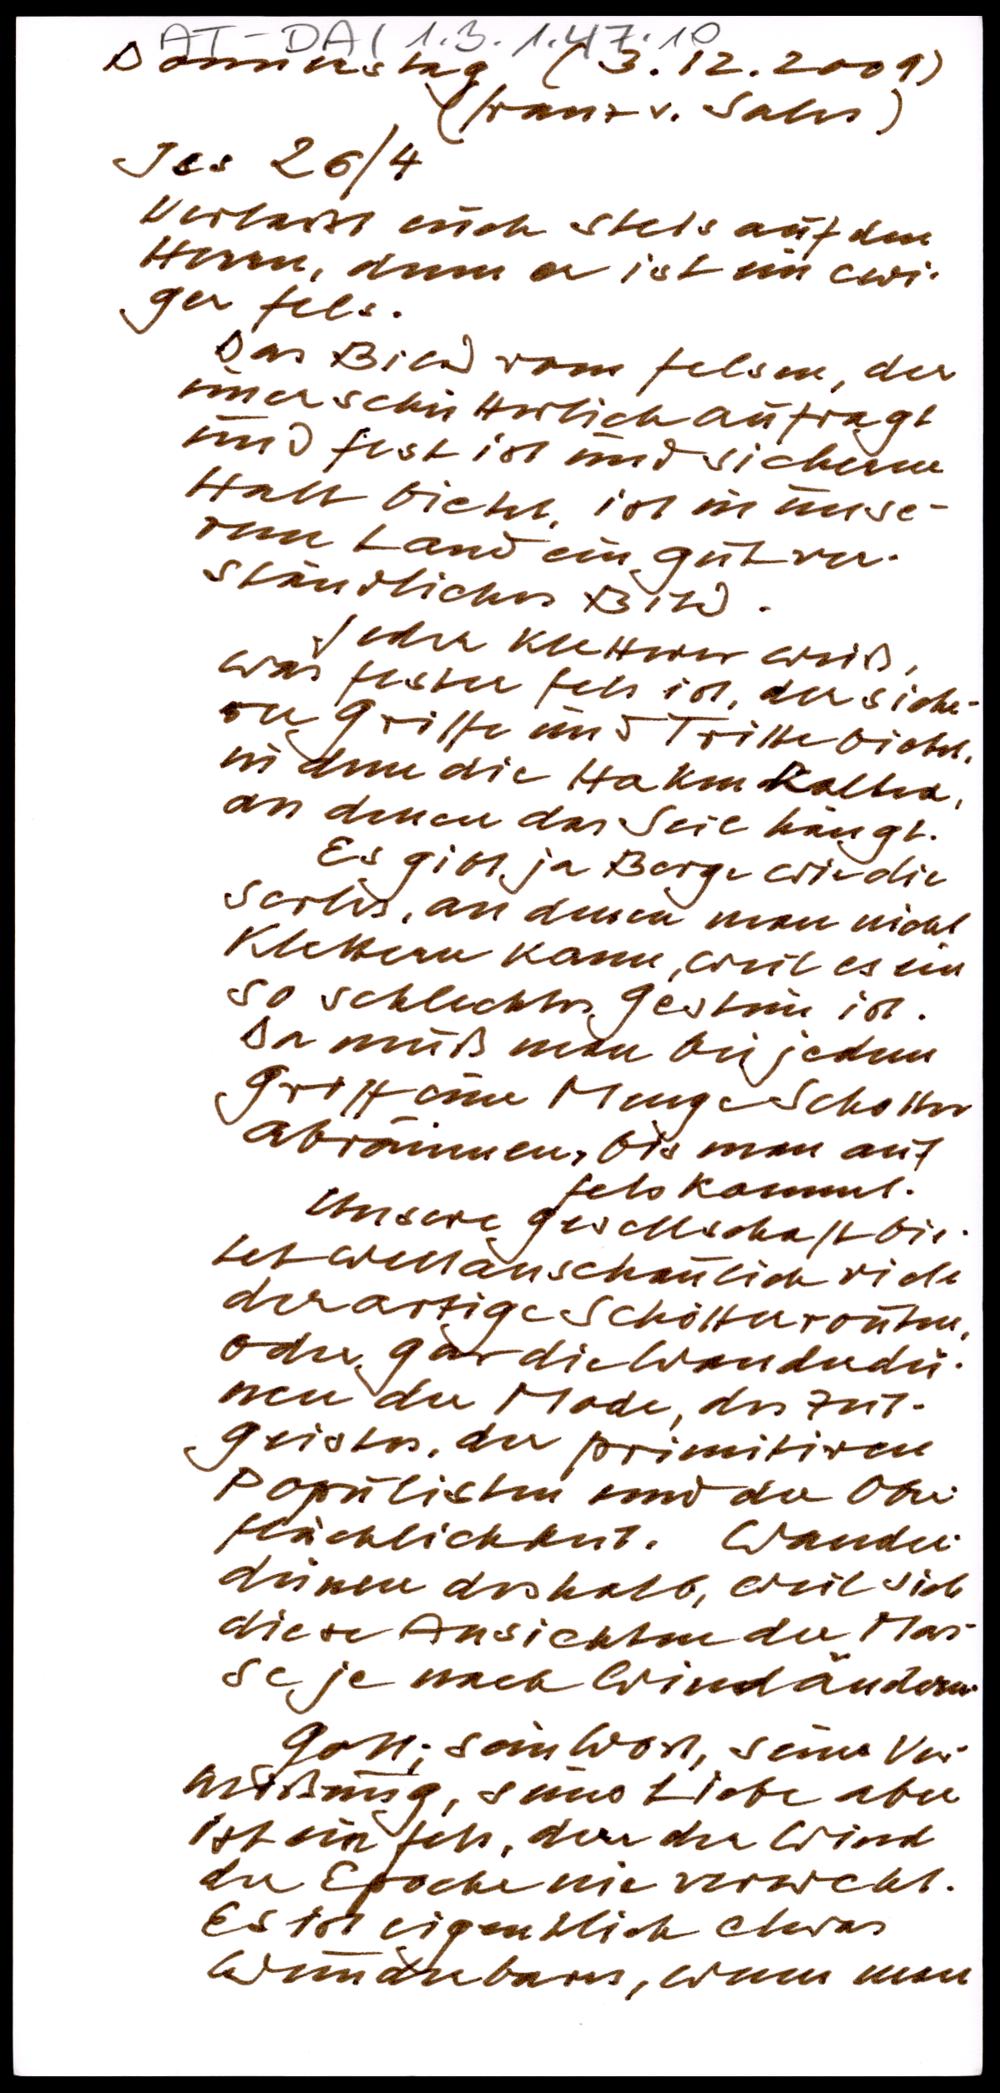 AT-DA/1.3.1.47.10
Donnerstag (3.12.2009)
(Franz v. Sales)
Jes 26/4
Verlasst euch stets auf den
Herrn, denn er ist ein ewi-
ger Fels.
Das Bild vom Felsen, der
unerschütterlich aufragt
und fest ist und sicheren
Halt bietet, ist in unse-
rem Land ein gut ver-
ständliches Bild.
Jeder Kletterer weiß,
was fester Fels ist, der siche-
re Griffe und Tritte bietet,
in dem die Haken halten,
an denen das Seil hängt.
Es gibt ja Berge wie die
Serles, an denen man nicht
klettern kann, weil es ein
so schlechtes Gestein ist.
Da muß man bei jedem
Griff eine Menge Schotter
abräumen, bis man auf
Fels kommt.
Unsere Gesellschaft bie-
tet weltanschaulich viele
derartige Schotterrouten,
oder gar die Wanderdü-
nen der Mode, des Zeit-
geistes, der primitiven
Populisten und der Ober-
flächlichkeit. Wander-
dünen deshalb, weil sich
diese Ansichten der Mas-
se je nach Wind ändern.
Gott, sein Wort, seine Ver-
heißung, seine Liebe aber
ist ein Fels, den der Wind
der Epoche nie verweht.
Es ist eigentlich etwas
Wunderbares, wenn man